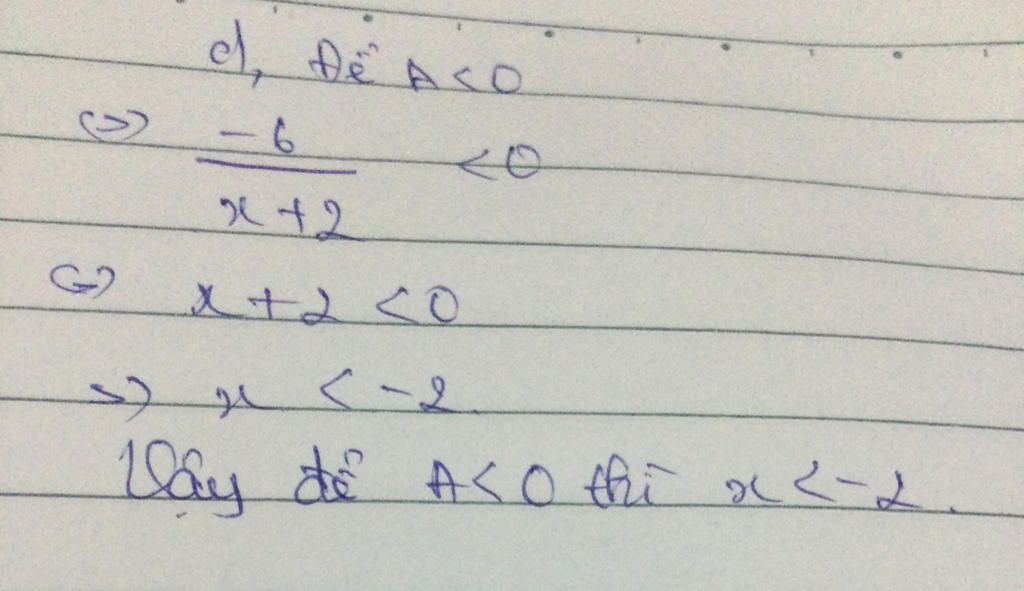 d, Để A < 0
<=> -6 / x + 2 < 0
<=> x + 2 < 0
=> x < -2
Vậy để A < 0 thì x < -2.